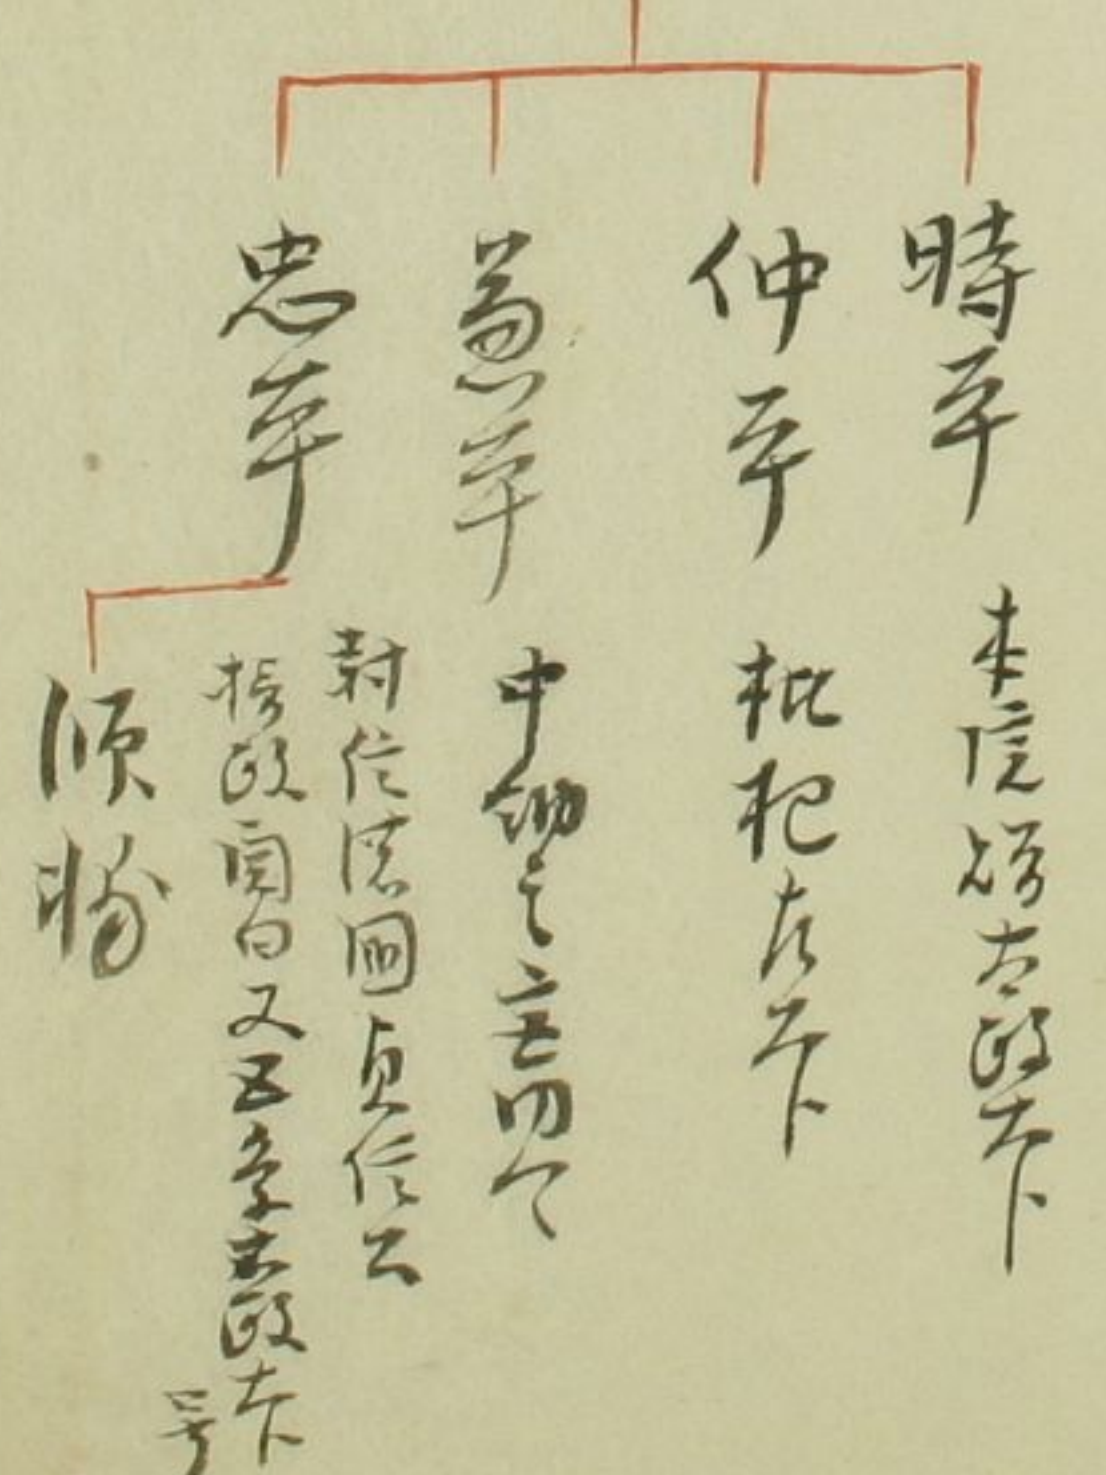 時平 本院贈太政大臣
仲平 枇杷左大臣
兼平 中納言宮内卿
忠平 封信濃國貞信公
摂政関白又五条太政大臣
号